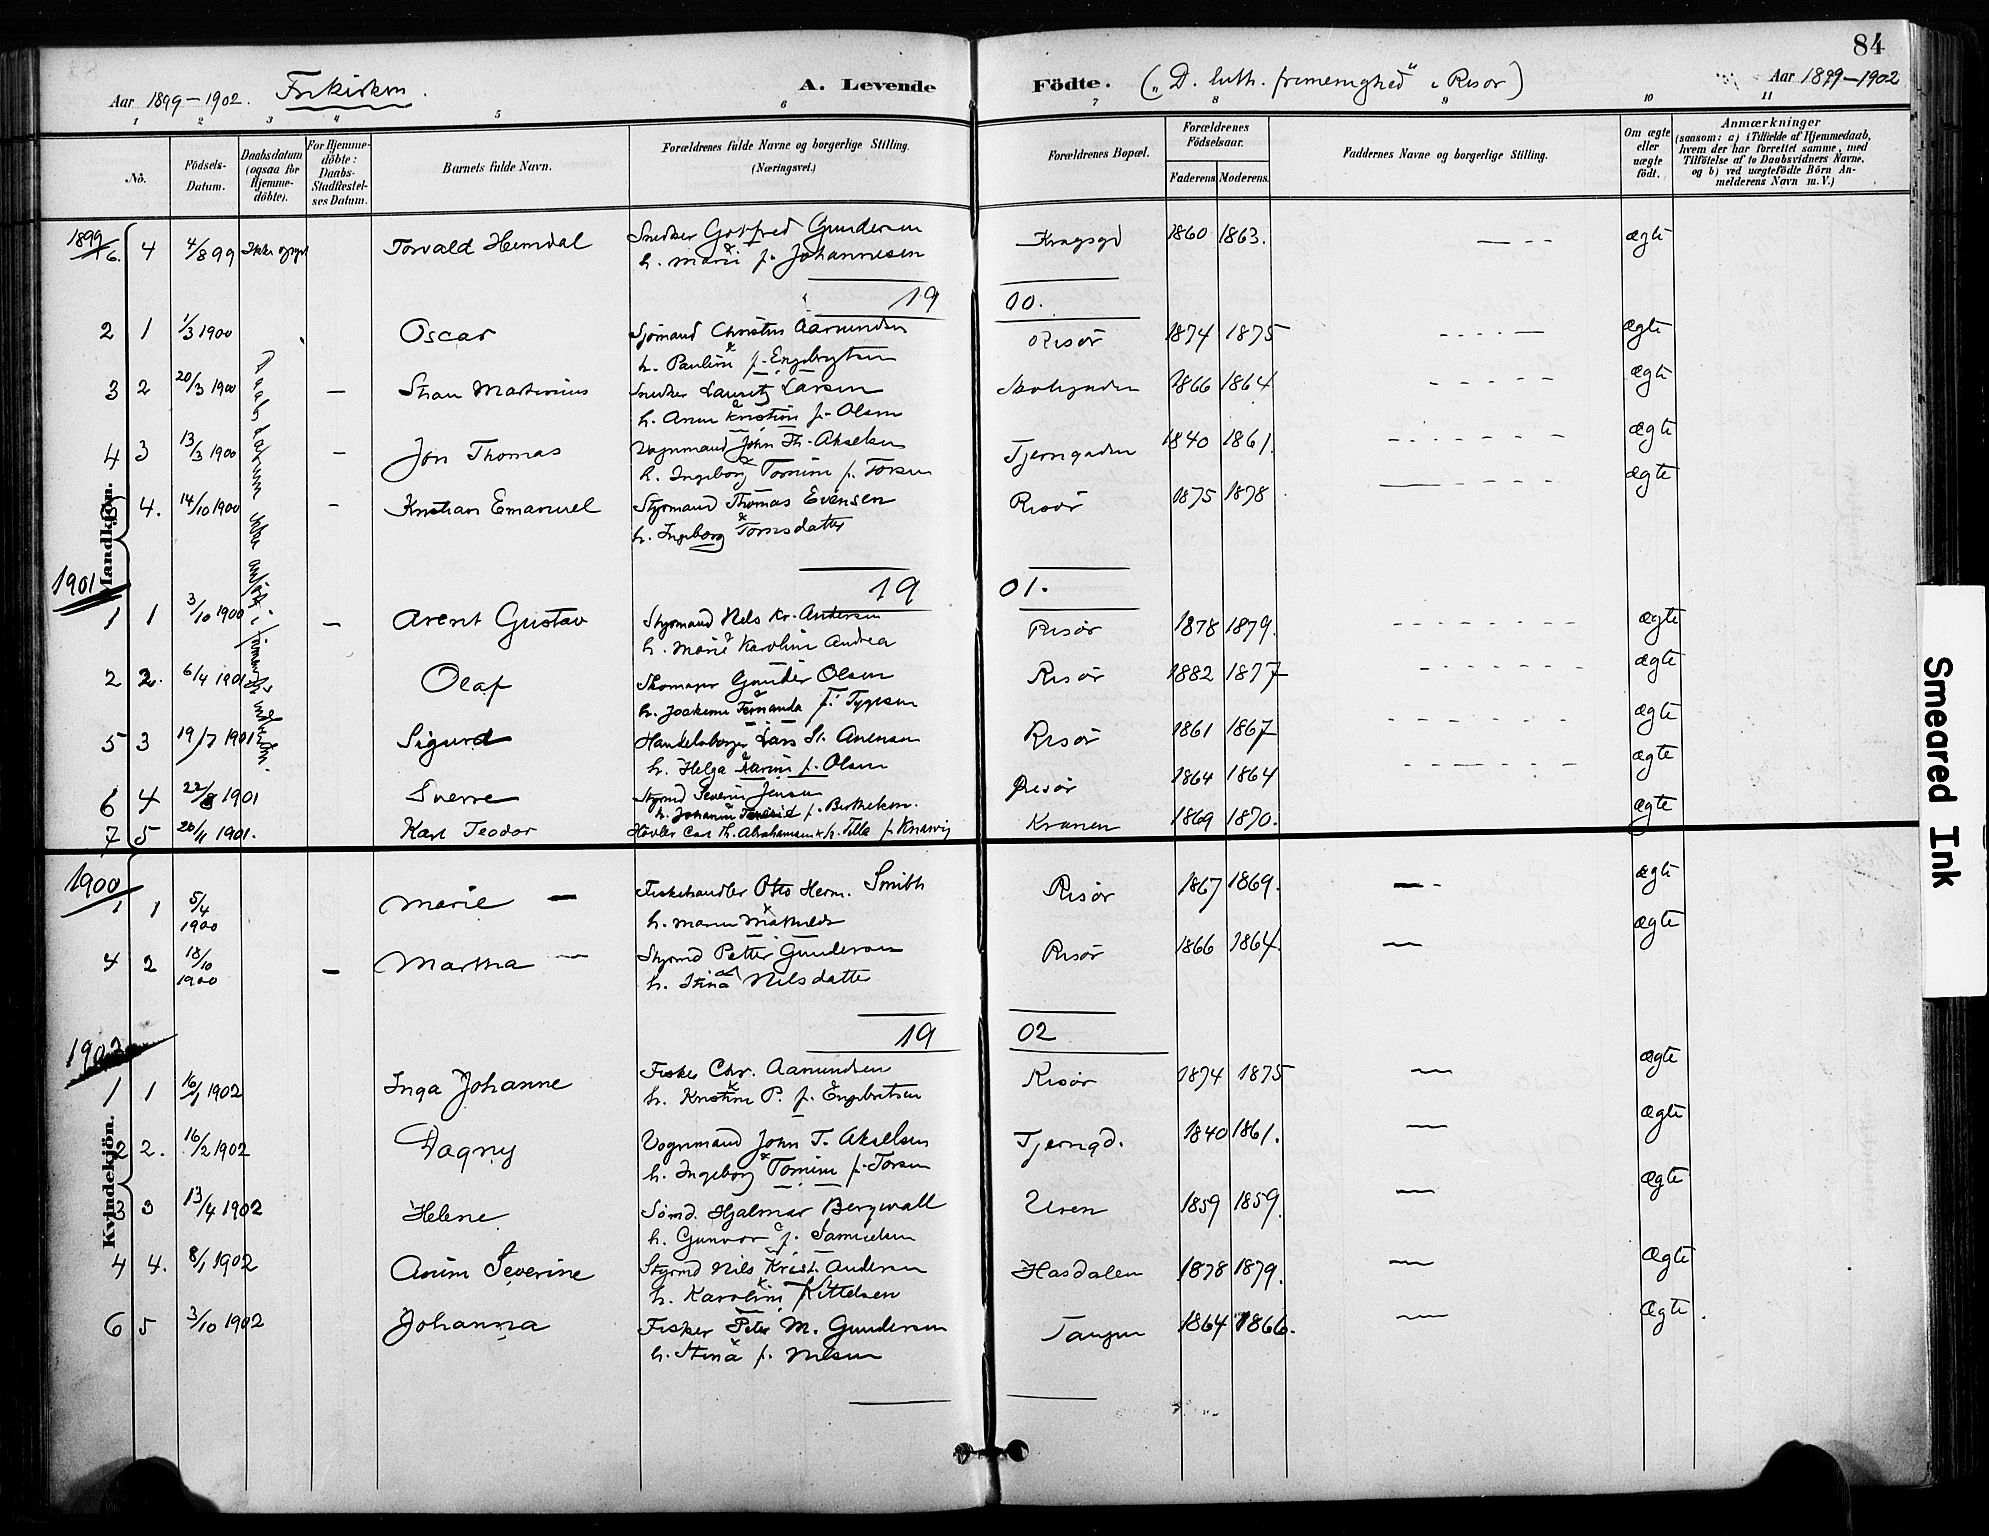 84
Aar 1899-1902. Frikirken. A. Levende Födte. („D. luth. frimenighed" i Risør) Aar 1899-1902
1 2 3 4 5 6 7 8 9 10 11
No.
Födsels-Datum.
Daabsdatum (ogsaa for Hjemme-döbte).
For Hjemme-döbte: Daabs-Stadfæstel-ses Datum.
Barnets fulde Navn.
Forældrenes fulde Navne og borgerlige Stilling. (Næringsvei.)
Forældrenes Bopæl.
Forældrenes Födselsaar.
Faderens Moderens.
Faddernes Navne og borgerlige Stilling.
Om ægte eller uægte födt.
Anmærkninger
(saasom: a) i Tilfælde af Hjemmedaab,
hvem der har forrettet samme, med
Tilföielse af to Daabsvidners Navne,
og b) ved uægtefödte Börn An-
melderens Navn m. V.)
Mandkjön.
1899
6. 4 4/8 99 Ikke Torvald Heimdal Snedker Gotfred Gundersen Kragsgd 1860 1863. ægte
& h. Marie f. Johannesen
19 00.
2 1 1/3 1900 Oscar Sjømand Christen Aamundsen Risör 1874 1875 ægte
& h. Pauline f. Engebrytsen
3 2 20/3 1900 - Martinius Snedker Lauritz Larsen 1866 1864 ægte
& h. Anne Kristine f. Olsen
4 3 13/3 1900 - Jon Thomas Vognmand John Th. Akselsen Tjerngaden 1840 1861. ægte
& h. Ingeborg Tomine f. Torsen
5 4. 14/10 1900 - Kristian Emanuel Styrmand Thomas Evensen Risør 1875 1878 ægte
& h. Ingeborg Tomsdatter
Daabsdatum ikke anført i
1901 19 01.
1 1 3/10 1900 - Arent Gustav Styrmand Nils Kr. Andersen Risör 1878 1879. ægte
& h. Marie Karoline Andrea
2 2. 6/4 1901 Olaf Skomager Gunder Olsen Risör 1882 1877 ægte
& h. Joakime Fernanda f. Tygesen
5 3 19/7 1901 Sigurd Handelsborger Lars St. Arensen Risör 1861 1867 ægte
& h. Helga Karine f. Olsen
6 4 22/8 1901 Sverre Styrmd Severin Jensen Risör 1864 1864 ægte
& h. Johanne f. Berthelsen.
7 5 20/11 1901. Karl Teodor Høvler Carl Th. Abrahamsen & h. Tilla f. Knarvig Kranen 1869 1870. ægte
Kvindekjön.
1900
1 1 5/4 1900 Marie - Fiskehandler Otto Herm. Smith Risör 1867 1869. ægte
& h. Maren Mathilde
4 2 18/10 1900 - Martha - Styrmd Petter Gundersen Risör 1866 1864. ægte
& h. Stina Nilsdatter
1902 19 02
1 1 16/1 1902 Inga Johanne Fisker Chr. Aamundsen Risør 1874 1875 ægte
& h. Kristine P. f. Engebretsen
2 2. 16/2 1902 Dagny Vognmand John T. Akselsen Tjerngd. 1840 1861. ægte
& h. Ingeborg Tomine f. Torsen
3 3 13/4 1902 Helene Sømd. Hjalmar Bergwall Uren 1859 1859. ægte
& h. Gunvor f. Samuelsen
4 4. 8/1 1902 Severine Styrmd Nils Krist. Andersen Hasdalen 1878 1879. ægte
& h. Karoline f. Kittelsen
6 5 3/10 1902 Johanna Fisker Peter M. Gundersen Tangen 1864 1866. ægte.
& h. Stina f. Nilsen
Smeared Ink